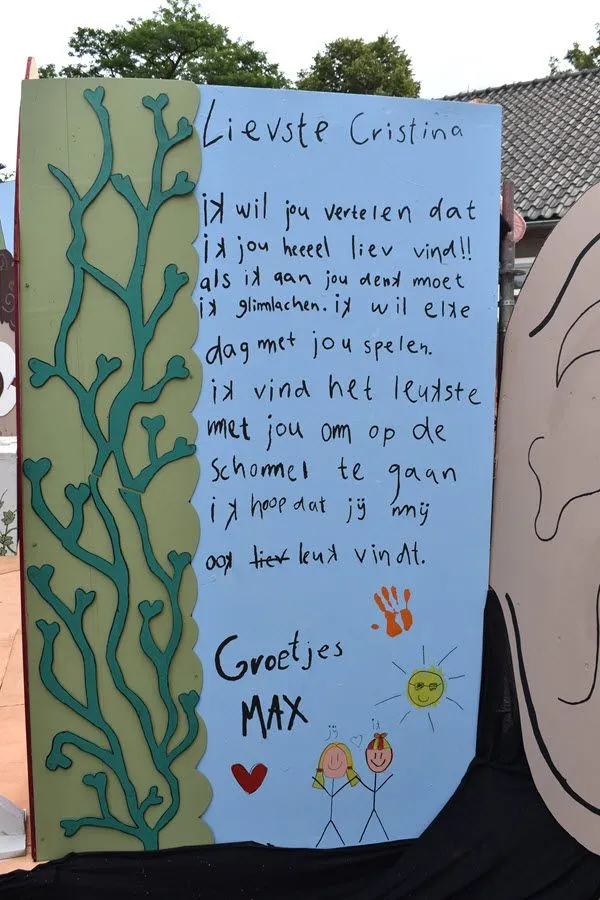 Lievste Cristina
ik wil jou vertelen dat
ik jou heeeel liev vind!!
als ik aan jou denk moet
ik glimlachen. ik wil elke
dag met jou spelen.
ik vind het leukste
met jou om op de
schommel te gaan
ik hoop dat jij mij
ook liev leuk vindt.
Groetjes
MAX
jij ik